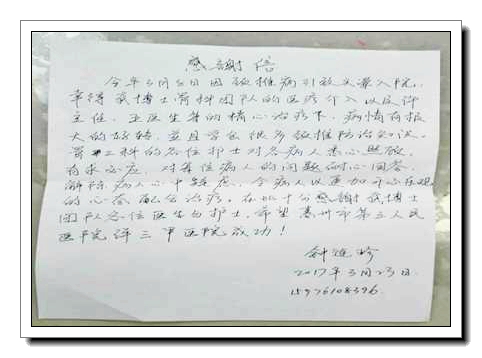 感謝信
今年3月8日因颈椎病引致头晕入院,
幸得 武博士骨科团队的医疗介入以及许
主任、王医生等的精心治疗下,病情有很
大的好转,并且学会很多颈椎防治知识。
骨二科的各位护士对各病人悉心照顾,
有求必应,对每位病人的问题耐心回答,
解除病人心中疑虑,令病人以更加开心乐观
的心态配合治疗。在此十分感謝 武博士
团队各位医生和护士,希望惠州市第三人民
医院评三甲医院成功!
2017年3月23日